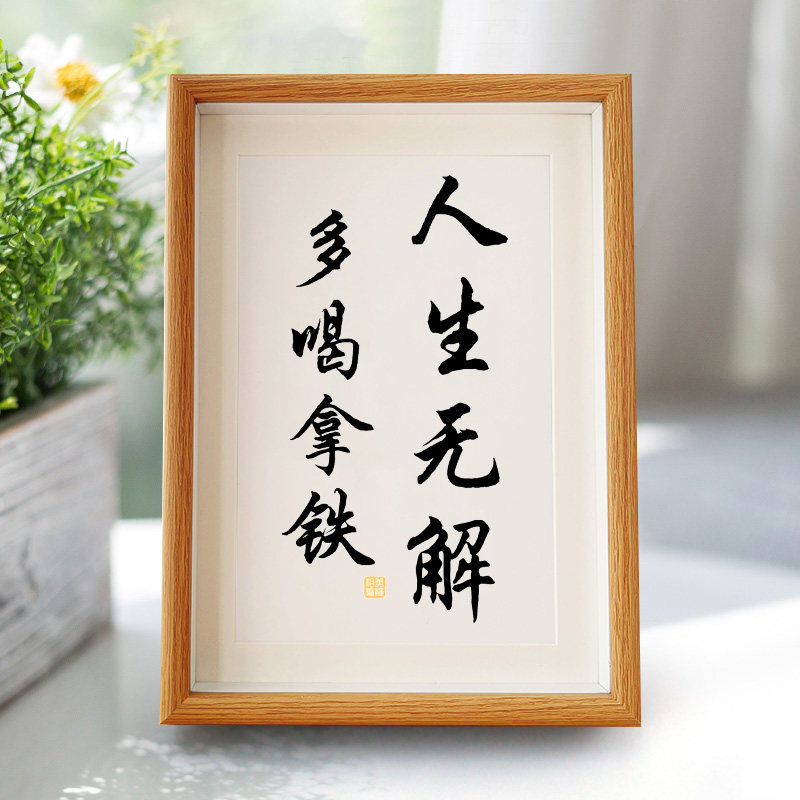 人生无解
多喝拿铁